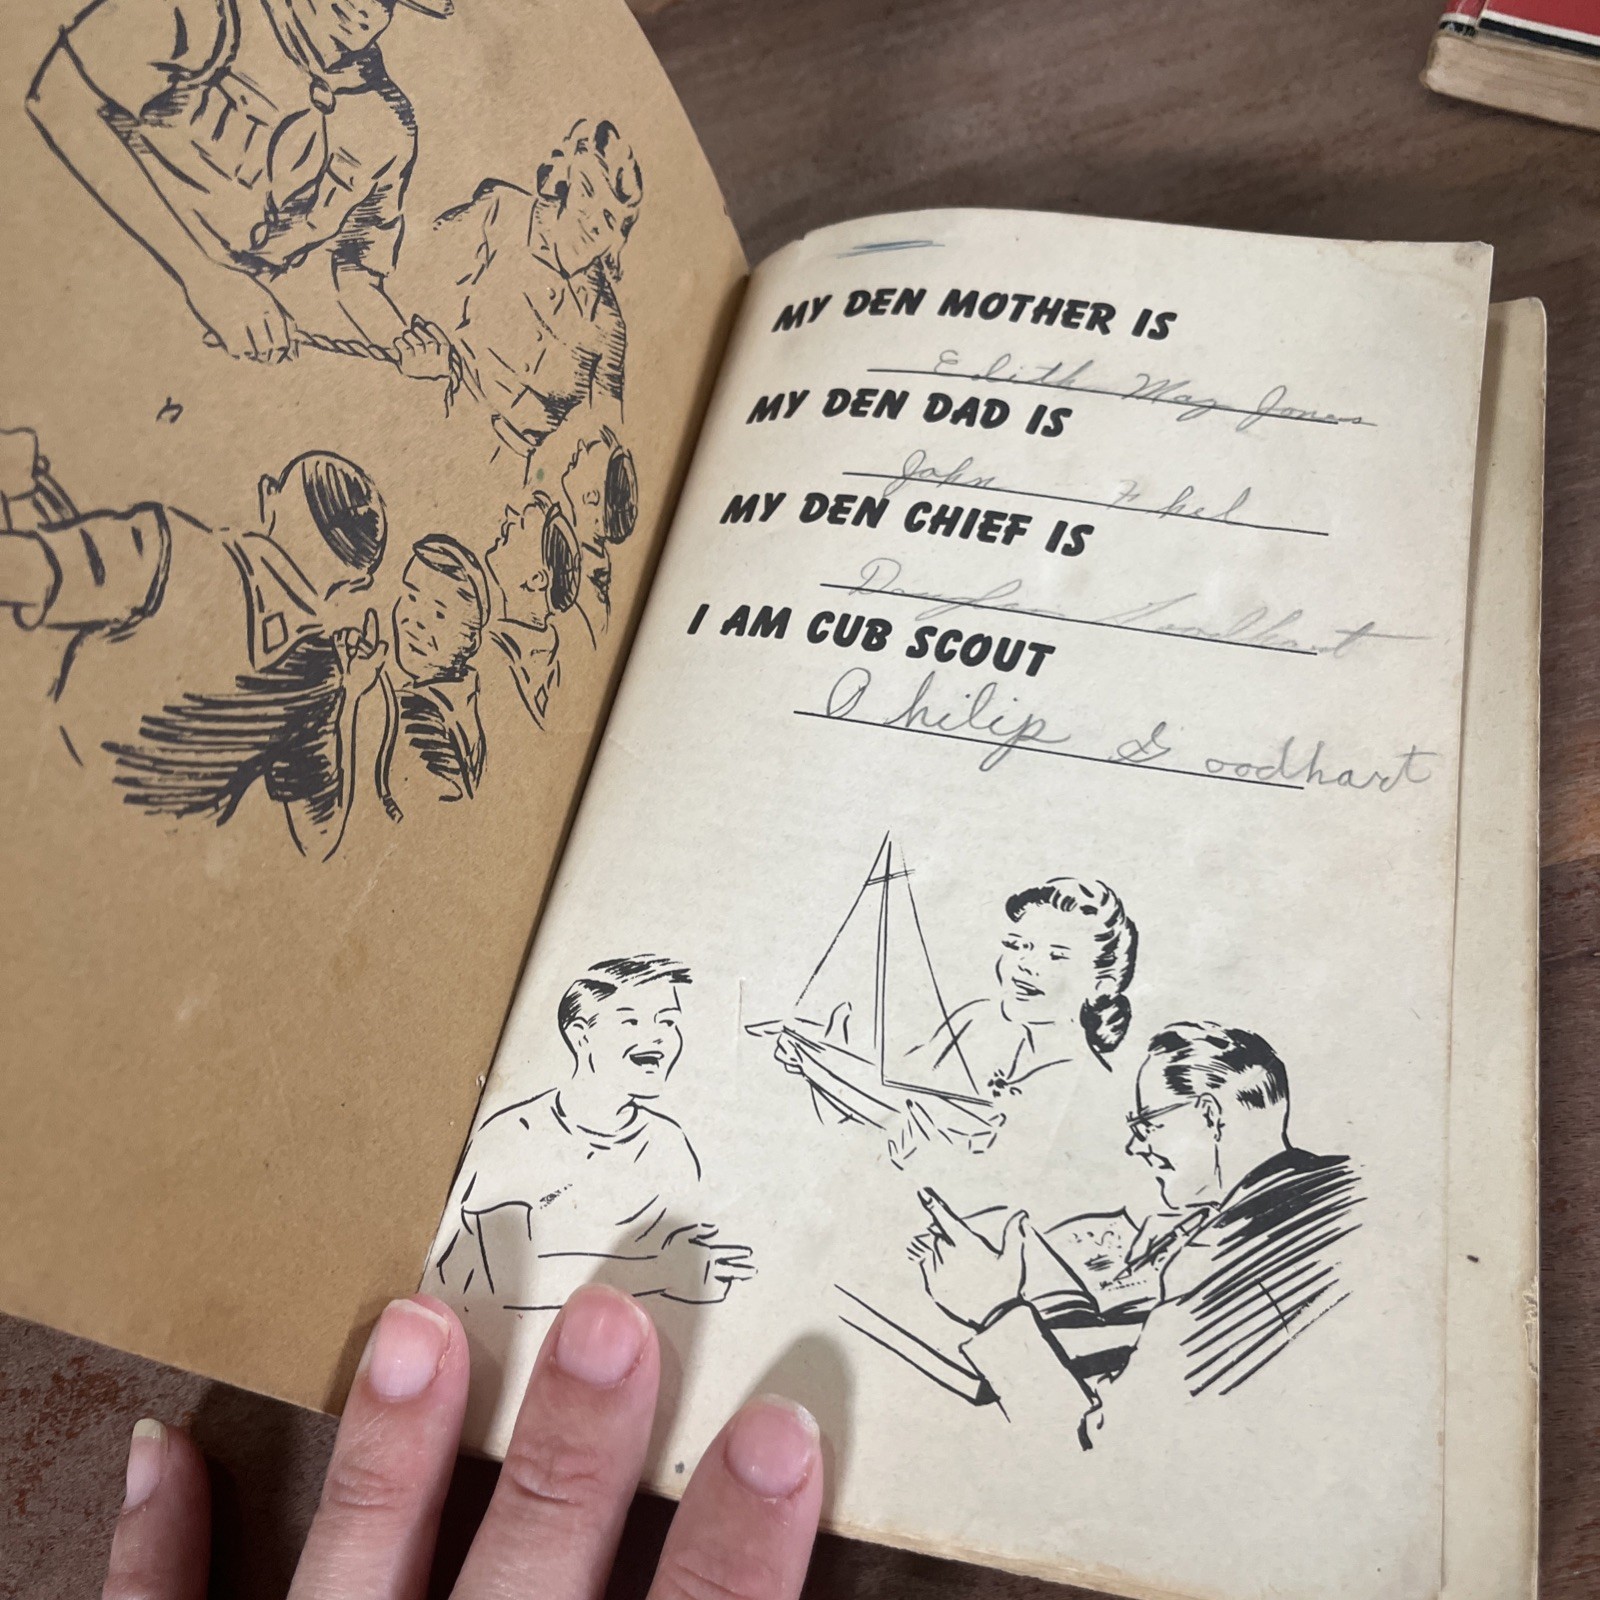 MY DEN MOTHER IS
Edith May Jones
MY DEN DAD IS
John
MY DEN CHIEF IS
Goodhart
I AM CUB SCOUT
Philip Goodhart